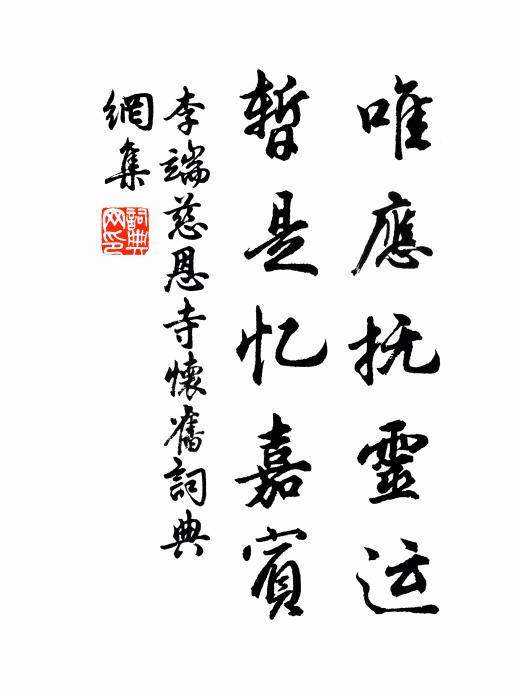 唯應抚靈运
暂是忆嘉賓
李端慈恩寺懷舊詞典
網集
詞典
网印